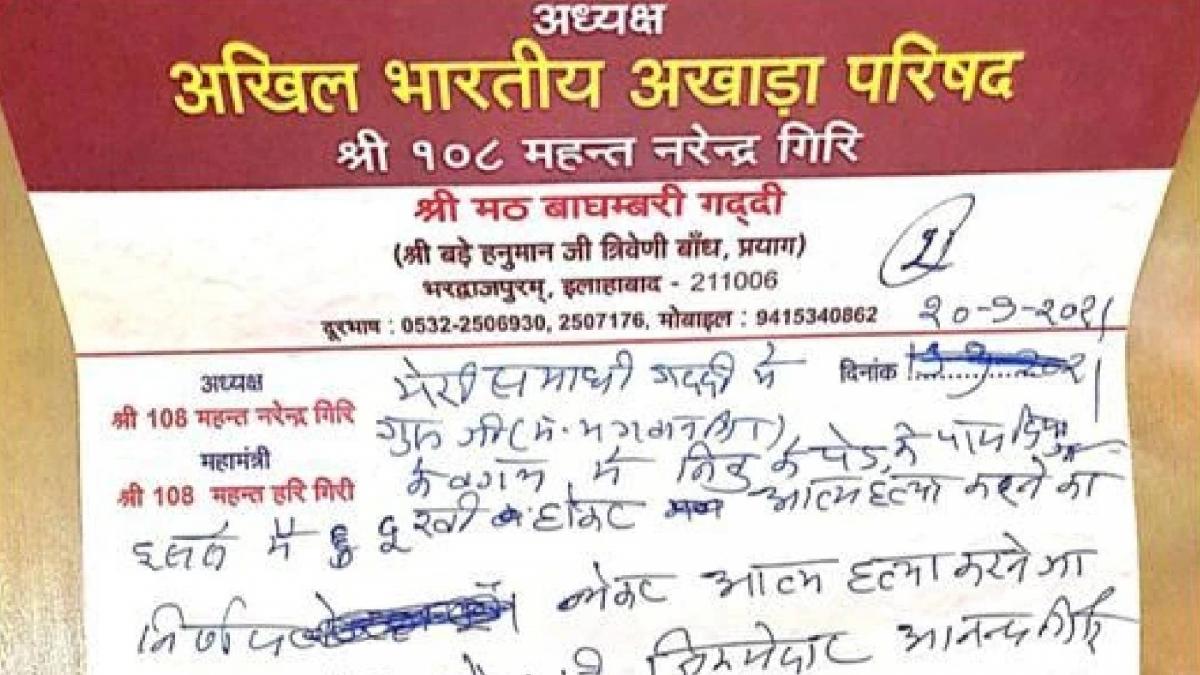 अध्यक्ष
अखिल भारतीय अखाड़ा परिषद
श्री १०८ महन्त नरेन्द्र गिरि
श्री मठ बाघम्बरी गद्दी
(श्री बड़े हनुमान जी त्रिवेणी बाँध, प्रयाग)
भरद्वाजपुरम्, इलाहाबाद - 211006
दूरभाष : 0532-2506930, 2507176, मोबाइल : 9415340862
२०-९-२०२१
दिनांक
अध्यक्ष
श्री 108 महन्त नरेन्द्र गिरि
महामंत्री
श्री 108 महन्त हरि गिरी
मेरी समाधी गद्दी मे
गुरु जी
के बगल मे निबु के पेड़ के पास दिया
दुखी होकर आत्महत्या करने का
निर्णय आत्म हत्या करने का
जिम्मेदार आनन्द गिरि